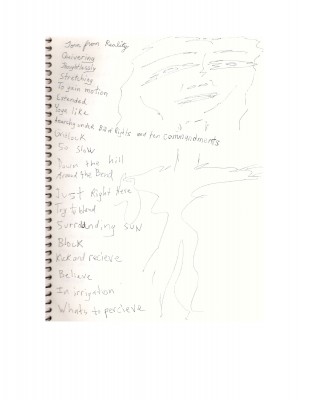 from Reality
Quivering
Thoughtlessly
Stretching
To gain motion
Extended
Page like
under Bill of Rights and ten commandments
Gridlock
So slow
Down the hill
Around the Bend
Just Right Here
Try to blend
Surrounding SUN
Block
Kick and recieve
Behave
In irrigation
Whats to percieve